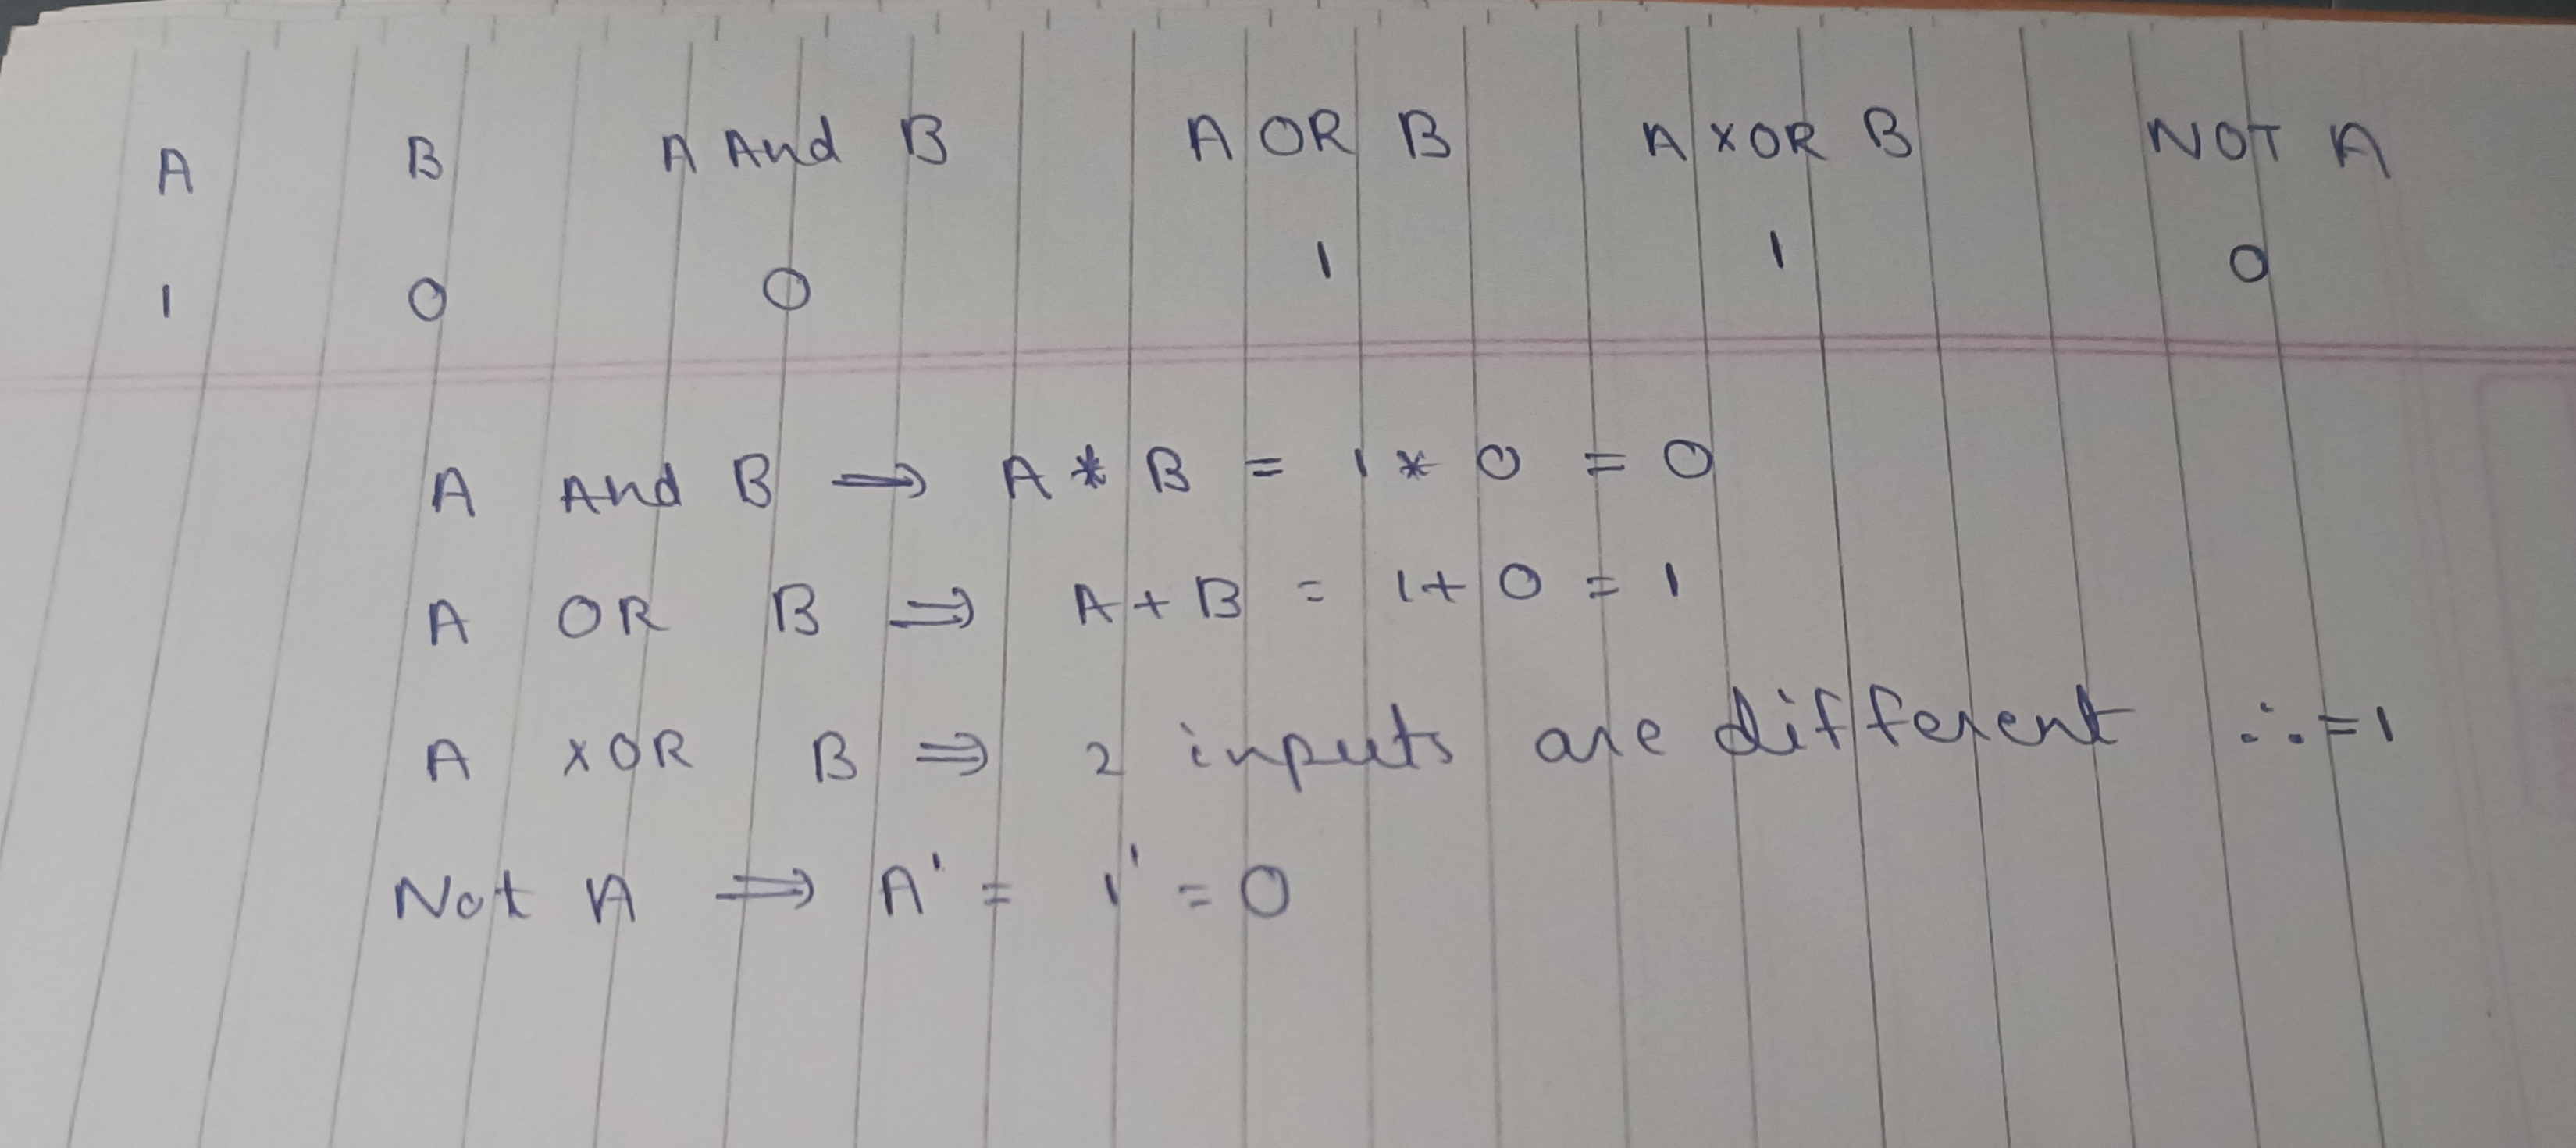 A B A And B A OR B A XOR B NOT A
1 0 0 1 1 0
A And B ⇒ A * B = 1 * 0 = 0
A OR B ⇒ A + B = 1 + 0 = 1
A XOR B ⇒ 2 inputs are different ∴ = 1
Not A ⇒ A' = 1' = 0